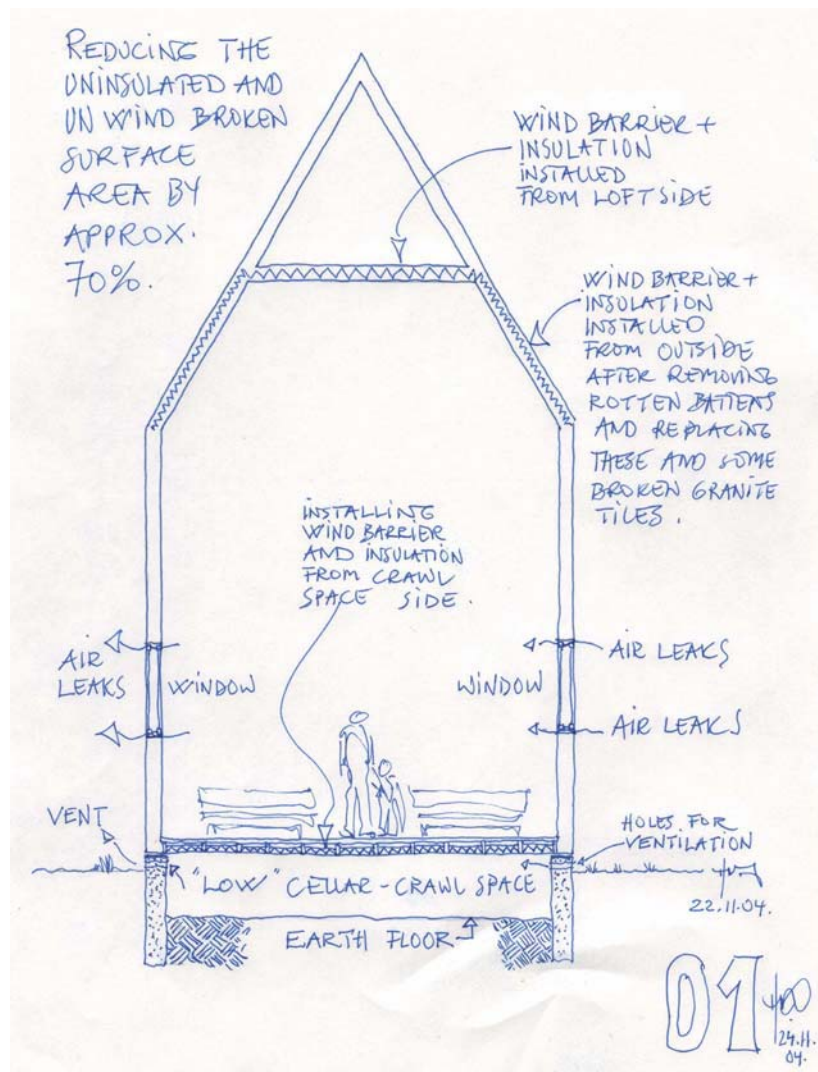 REDUCING THE
UNINSULATED AND
UN WIND BROKEN
SURFACE
AREA BY
APPROX.
70%.
WIND BARRIER +
INSULATION
INSTALLED
FROM LOFTSIDE
WIND BARRIER +
INSULATION
INSTALLED
FROM OUTSIDE
AFTER REMOVING
ROTTEN BATTENS
AND REPLACING
THESE AND SOME
BROKEN GRANITE
TILES.
INSTALLING
WIND BARRIER
AND INSULATION
FROM CRAWL
SPACE SIDE.
AIR
LEAKS
WINDOW
WINDOW
AIR LEAKS
AIR LEAKS
VENT
HOLES FOR
VENTILATION
"LOW" CELLAR - CRAWL SPACE
22.11.04.
EARTH FLOOR
01
24.11.
04.